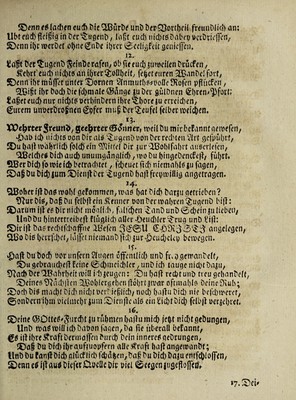 Denn es lachen euch die Würde und der Vortheil freundlich an:
Ubt euch fleißig in der Tugend, laßt euch nichts dabey verdriessen,
Denn ihr werdet ohne Ende ihrer Seeligkeit geniessen.
12.
Laßt der Tugend Feinde rasen, ob sie euch zuweilen drücken,
Kehrt euch nichts an ihrer Tollheit, setzet euren Wandel fort,
Denn ihr müsset unter Dornen Anmuths-volle Rosen pflücken,
Wißt ihr doch die schmale Gänge zu der güldnen Ehren-Pfort:
Lasset euch nur nichts verhindern ihre Thore zu erreichen,
Eurem unverdroßnen Eyfer muß der Teufel selber weichen.
13.
Wehrter Freund, geehrter Gönner, weil du mir bekannt gewesen,
Hab ich nichts von dir als Tugend von der rechten Art gespührt,
Du hast währlich solch ein Mittel dir zur Wohlfahrt auserlesen,
Welches dich auch unumgänglich, wo du hingedenckest, führt.
Wer dich so wie ich betrachtet, scheuet sich niemahls zu sagen,
Daß du dich zum Dienst der Tugend hast freywillig angetragen.
14.
Woher ist das wohl gekommen, was hat dich darzu getrieben?
Nur dis, daß du selbst ein Kenner von der wahren Tugend bist:
Darum ist es dir nicht möglich, falschen Tand und Schein zu lieben,
Und du hintertreibest klüglich aller Heuchler Trug und List:
Dir ist das rechtschaffne Wesen JESU CHRISTI angelegen,
Wo dis herrschet, lässet niemand sich zur Heucheley bewegen.
15.
Hast du doch vor unsern Augen öffentlich und frey gewandelt,
Du gebrauchest keine Schmeichler, und ich tauge nicht dazu,
Nach der Wahrheit will ich zeugen: Du hast recht und treu gehandelt,
Deines Nächsten Wohlergehen stöhrt zwar ofsmahls deine Ruh;
Doch dis macht dich nicht verdrießlich, noch hast du dich nie beschweret,
Sondern ihm vielmehr zum Dienste als ein Licht dich selbst verzehret.
16.
Deine GOttes-Furcht zu rühmen hast du mich jetzt nicht gedungen,
Und was will ich davon sagen, da sie überall bekannt,
Es ist ihre Kraft dermassen durch dein inneres gedrungen,
Daß du dich ihr aufzuopfern alle Kraft hast angewandt;
Und du kanst dich glücklich schätzen, daß du dich dazu entschlossen,
Denn es ist aus dieser Quelle dir viel Seegen zugeflossen.
17. Dei-